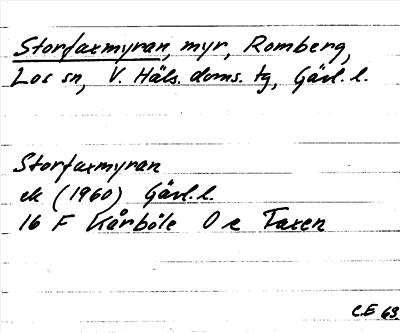 Storfaxmyran, myr, Romberg,
Los sn, V. Häls. doms. tg, Gävl. l.
Storfaxmyran
ek (1960) Gävl. l.
16 F Kårböle O e Faxen
C.E 63